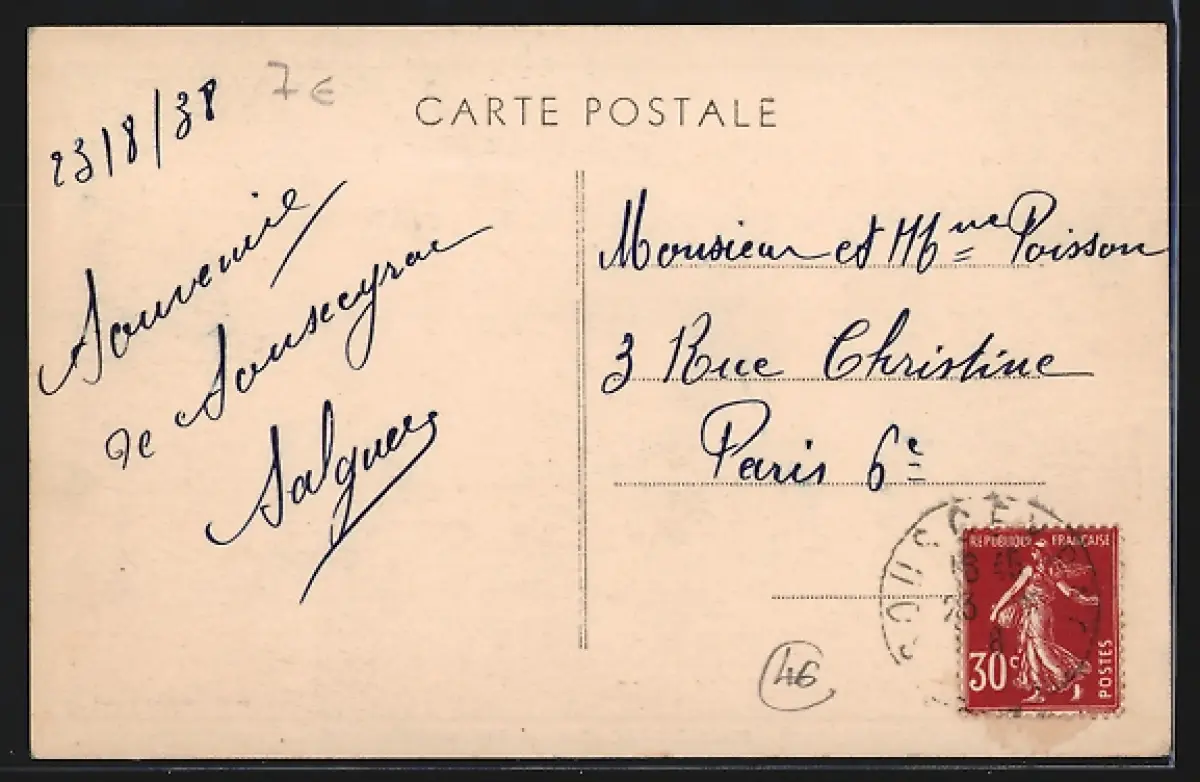 23/8/38
7€
CARTE POSTALE
Souvenir
de Sousceyrac
Salgues
Monsieur et Mme Poisson
3 Rue Christine
Paris 6e
SOUSCEYRAC
18 45
23
8
REPUBLIQUE FRANÇAISE
30c
POSTES
46